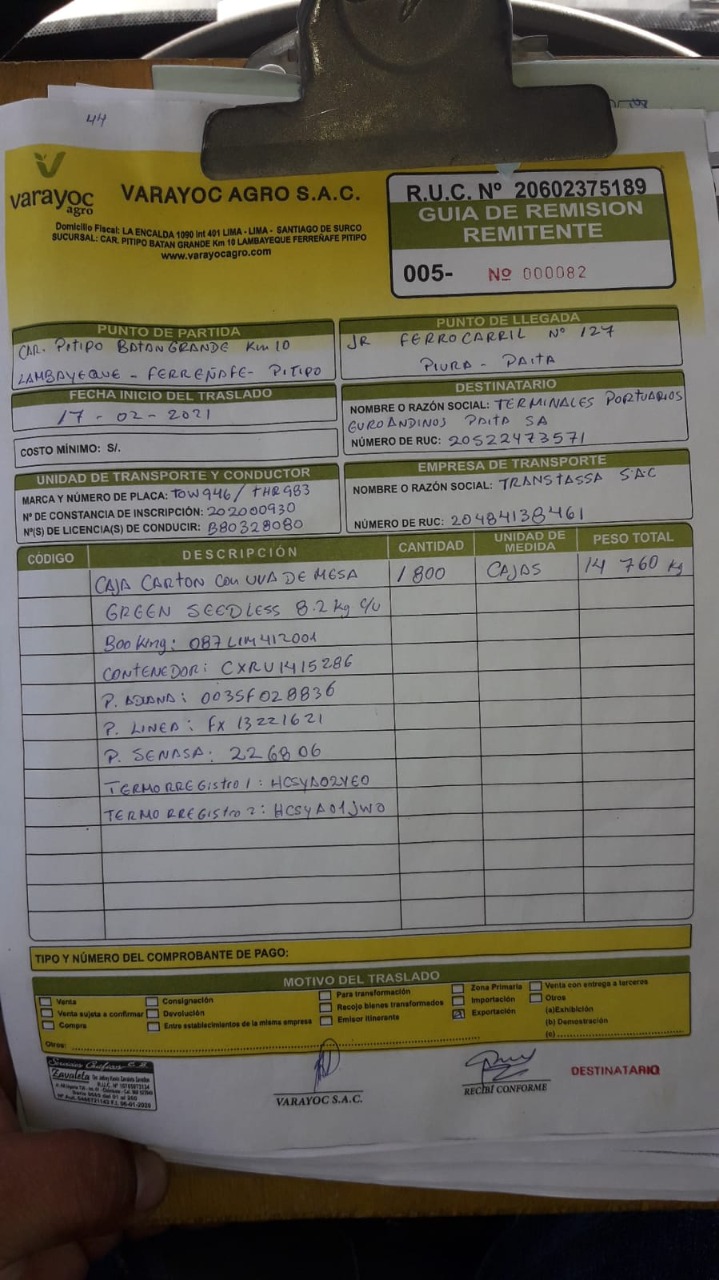 44
varayoc
agro
VARAYOC AGRO S.A.C.
Domicilio Fiscal: LA ENCALDA 1090 Int 401 LIMA - LIMA - SANTIAGO DE SURCO
SUCURSAL: CAR. PITIPO BATAN GRANDE Km 10 LAMBAYEQUE FERREÑAFE PITIPO
www.varayocagro.com
R.U.C. Nº 20602375189
GUIA DE REMISION
REMITENTE
005- Nº 000082
PUNTO DE PARTIDA
CAR. PITIPO BATAN GRANDE Km 10
LAMBAYEQUE - FERREÑAFE - PITIPO
PUNTO DE LLEGADA
JR FERROCARRIL Nº 127
PIURA - PAITA
FECHA INICIO DEL TRASLADO
17 - 02 - 2021
COSTO MÍNIMO: S/.
DESTINATARIO
NOMBRE O RAZÓN SOCIAL: TERMINALES PORTUARIOS
EUROANDINOS PAITA SA
NÚMERO DE RUC: 20522473571
UNIDAD DE TRANSPORTE Y CONDUCTOR
MARCA Y NÚMERO DE PLACA: TOW946 / THR983
Nº DE CONSTANCIA DE INSCRIPCIÓN: 202000930
Nº(S) DE LICENCIA(S) DE CONDUCIR: B80328080
EMPRESA DE TRANSPORTE
NOMBRE O RAZÓN SOCIAL: TRANSTASSA SAC
NÚMERO DE RUC: 20484138461
CÓDIGO DESCRIPCIÓN CANTIDAD UNIDAD DE MEDIDA PESO TOTAL
CAJA CARTON CON UVA DE MESA 1800 CAJAS 14 760 kg
GREEN SEEDLESS 8.2 kg c/u
Booking: 087LIM412001
CONTENEDOR: CXRU1415286
P. ADUANA: 0035F028836
P. LINEA: FX 13221621
P. SENASA: 226806
TERMORREGistro 1: HCSYA02YE0
TERMORREGistro 2: HCSYA01JW0
TIPO Y NÚMERO DEL COMPROBANTE DE PAGO:
MOTIVO DEL TRASLADO
Venta
Venta sujeta a confirmar
Compra
Consignación
Devolución
Entre establecimientos de la misma empresa
Para transformación
Recojo bienes transformados
Emisor itinerante
Zona Primaria
Importación
Exportación
Venta con entrega a terceros
Otros
(a)Exhibición
(b) Demostración
(c)
Otros:
Zavaleta
VARAYOC S.A.C.
RECIBÍ CONFORME
DESTINATARIO